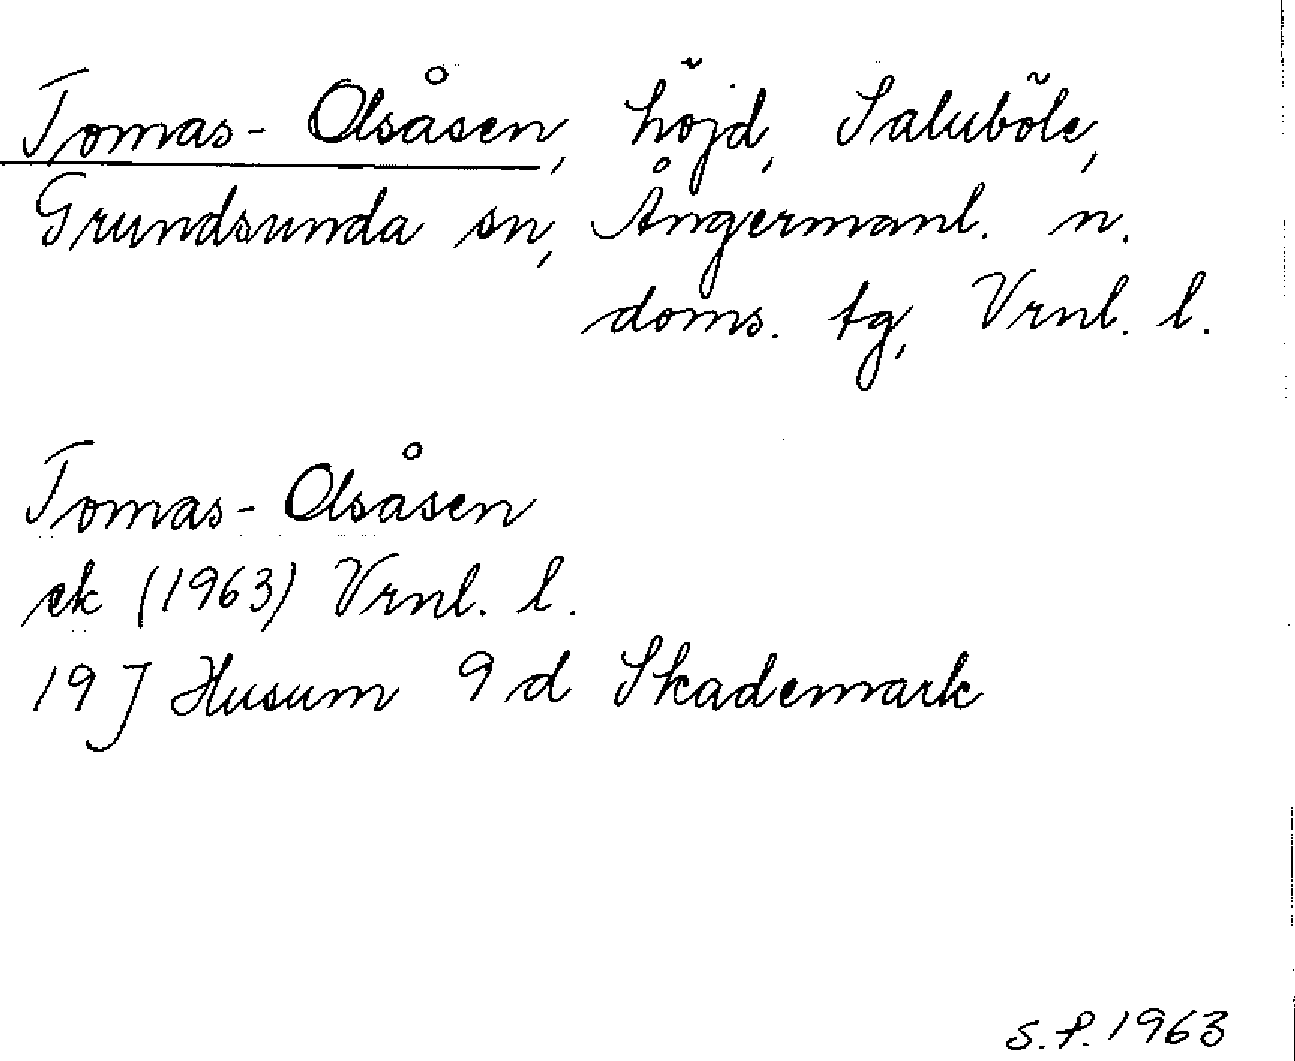 Tomas-Olsåsen, höjd, Saluböle,
Grundsunda sn, Ångermanl. n.
doms. tg, Vrnl. l.
Tomas-Olsåsen
ek (1963) Vrnl. l.
19 J Husum 9 d Skademark
S.P. 1963